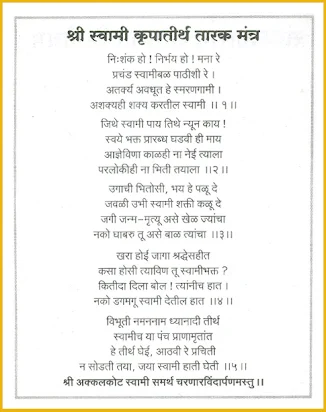 श्री स्वामी कृपातीर्थ तारक मंत्र
निःशंक हो ! निर्भय हो ! मना रे
प्रचंड स्वामीबळ पाठीशी रे ।
अतर्क्य अवधूत हे स्मरणगामी ।
अशक्यही शक्य करतील स्वामी ।। १ ।।
जिथे स्वामी पाय तिथे न्यून काय !
स्वये भक्त प्रारब्ध घडवी ही माय
आज्ञेविणा काळही ना नेई त्याला
परलोकीही ना भिती तयाला ।।२।।
उगाची भितोसी, भय हे पळू दे
जवळी उभी स्वामी शक्ती कळू दे
जगी जन्म-मृत्यू असे खेळ ज्यांचा
नको घाबरु तू असे बाळ त्यांचा ।।३।।
खरा होई जागा श्रद्धेसहीत
कसा होसी त्याविण तू स्वामीभक्त ?
कितीदा दिला बोल ! त्यांनीच हात ।
नको डगमगू स्वामी देतील हात ।।४।।
विभूती नमननाम ध्यानादी तीर्थ
स्वामीच या पंच प्राणामृतांत
हे तीर्थ घेई, आठवी रे प्रचिती
न सोडती तया, जया स्वामी हाती घेती ।।५।।
श्री अक्कलकोट स्वामी समर्थ चरणारविंदार्पणमस्तु ।।